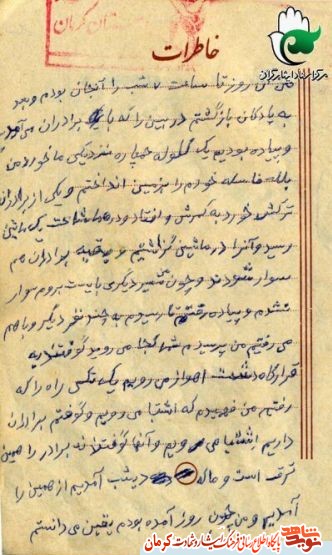 استان کرمان
مرکز اسناد ایثارگران
خاطرات
من آن روز تا ساعت ۷ شب را آنجا بودم و بعد
به پادگان بازگشتم در بین راه که با برادران می‌آمدیم
و پیاده بودیم یک گلوله خمپاره نزدیکی ما خورد من
با فاصله خودم را بزمین انداختم و یکی از برادران
ترکش خورد به کمرش و افتاد و در همان ساعت یک ماشین
رسید و آنرا در ماشین گذاشتیم و بقیه برادران هم
سوار شدند و چون مسیر دیگری می‌بایست بروم سوار
نشدم و پیاده رفتم تا رسیدم به چند نفر دیگر و با هم
می رفتیم من پرسیدم شما کجا می روید گفتند به
قرارگاه اهواز می رویم یک تکه راه را که
رفتیم من فهمیدم که اشتباه می رویم و گفتم برادران
داریم اشتباه می رویم و آنها گفتند نه برادر راه همین
طرف است و ما که دیشب آمدیم از همین راه
آمدیم و من چون روز آمده بودم یقین می دانستم
نوید شاهد
پایگاه اطلاع رسانی فرهنگ ایثار و شهادت کرمان